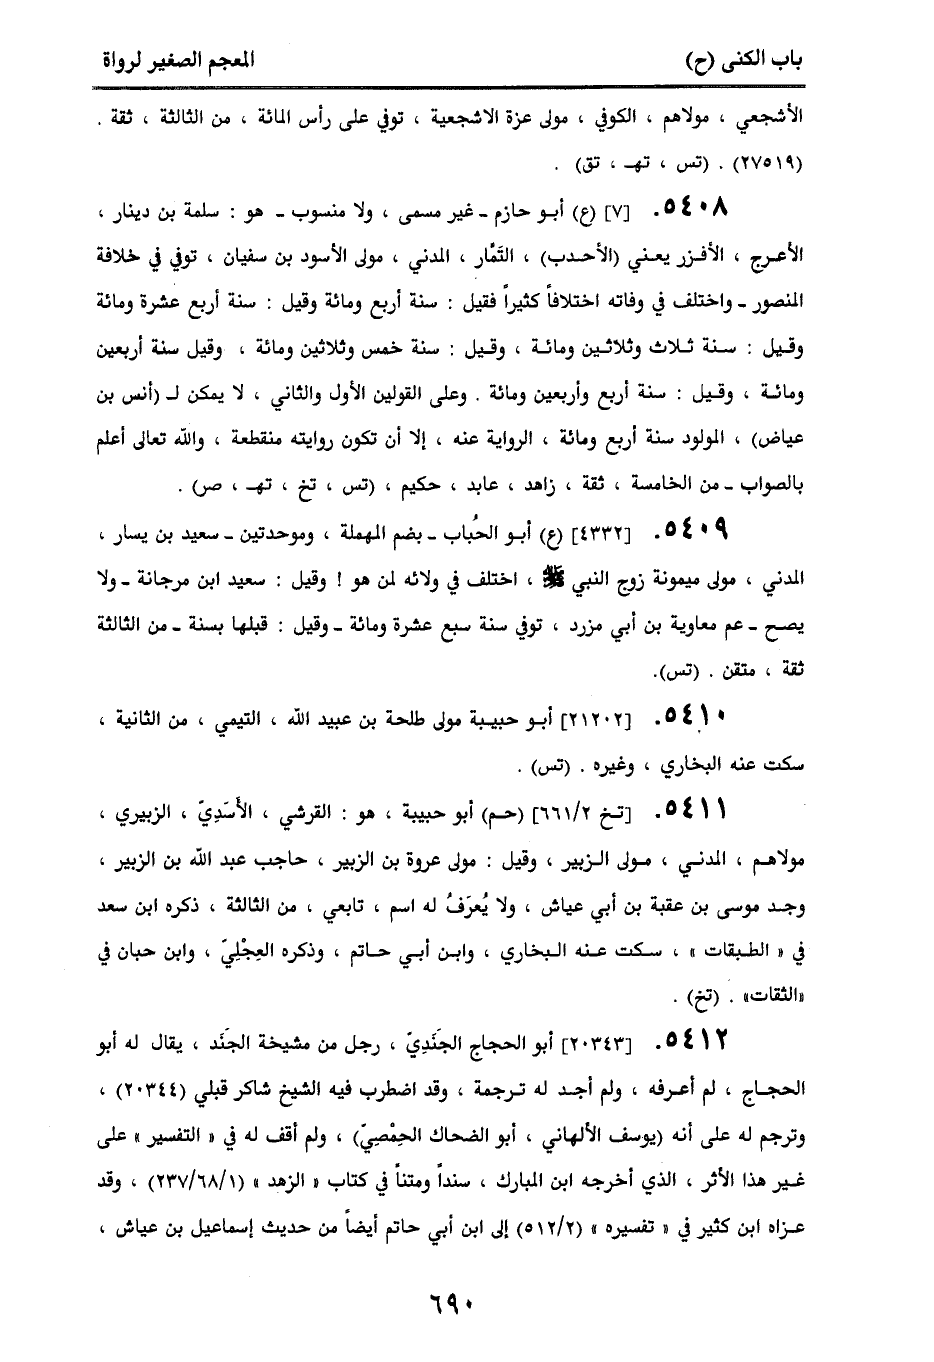 باب الكنى (ح) المعجم الصغير لرواة
الأشجعي ، مولاهم ، الكوفي ، مولى عزة الاشجعية ، توفي على رأس المائة ، من الثالثة ، ثقة .
(٢٧٥١٩) . (تس ، تهـ ، تق) .
٥٤٠٨. [٧] (ع) أبو حازم ـ غير مسمى ، ولا منسوب ـ هو : سلمة بن دينار ،
الأعرج ، الأفزر يعني (الأحدب) ، التَمَّار ، المدني ، مولى الأسود بن سفيان ، توفي في خلافة
المنصور ـ واختلف في وفاته اختلافاً كثيراً فقيل : سنة أربع ومائة وقيل : سنة أربع عشرة ومائة
وقيل : سنة ثلاث وثلاثين ومائة ، وقيل : سنة خمس وثلاثين ومائة ، وقيل سنة أربعين
ومائة ، وقيل : سنة أربع وأربعين ومائة . وعلى القولين الأول والثاني ، لا يمكن لـ (أنس بن
عياض) ، المولود سنة أربع ومائة ، الرواية عنه ، إلا أن تكون روايته منقطعة ، والله تعالى أعلم
بالصواب ـ من الخامسة ، ثقة ، زاهد ، عابد ، حكيم ، (تس ، تخ ، تهـ ، ص) .
٥٤٠٩. [٤٣٣٢] (ع) أبو الحُباب ـ بضم المهملة ، وموحدتين ـ سعيد بن يسار ،
المدني ، مولى ميمونة زوج النبي ﷺ ، اختلف في ولائه لمن هو ! وقيل : سعيد ابن مرجانة ـ ولا
يصح ـ عم معاوية بن أبي مزرد ، توفي سنة سبع عشرة ومائة ـ وقيل : قبلها بسنة ـ من الثالثة
ثقة ، متقن . (تس).
٥٤١٠. [٢١٢٠٢] أبو حبيبة مولى طلحة بن عبيد الله ، التيمي ، من الثانية ،
سكت عنه البخاري ، وغيره . (تس) .
٥٤١١. [تخ ٦٦١/٢] (حم) أبو حبيبة ، هو : القرشي ، الأَسَدِيّ ، الزبيري ،
مولاهم ، المدني ، مولى الزبير ، وقيل : مولى عروة بن الزبير ، حاجب عبد الله بن الزبير ،
وجد موسى بن عقبة بن أبي عياش ، ولا يُعرَفُ له اسم ، تابعي ، من الثالثة ، ذكره ابن سعد
في « الطبقات » ، سكت عنه البخاري ، وابن أبي حاتم ، وذكره العِجْلِيّ ، وابن حبان في
«الثقات» . (تخ) .
٥٤١٢. [٢٠٣٤٣] أبو الحجاج الجَنَدِيّ ، رجل من مشيخة الجَنَد ، يقال له أبو
الحجاج ، لم أعرفه ، ولم أجد له ترجمة ، وقد اضطرب فيه الشيخ شاكر قبلي (٢٠٣٤٤) ،
وترجم له على أنه (يوسف الألهاني ، أبو الضحاك الحِمْصِيّ) ، ولم أقف له في « التفسير » على
غير هذا الأثر ، الذي أخرجه ابن المبارك ، سنداً ومتناً في كتاب « الزهد » (٢٣٧/٦٨/١) ، وقد
عزاه ابن كثير في « تفسيره » (٥١٢/٢) إلى ابن أبي حاتم أيضاً من حديث إسماعيل بن عياش ،
٦٩٠